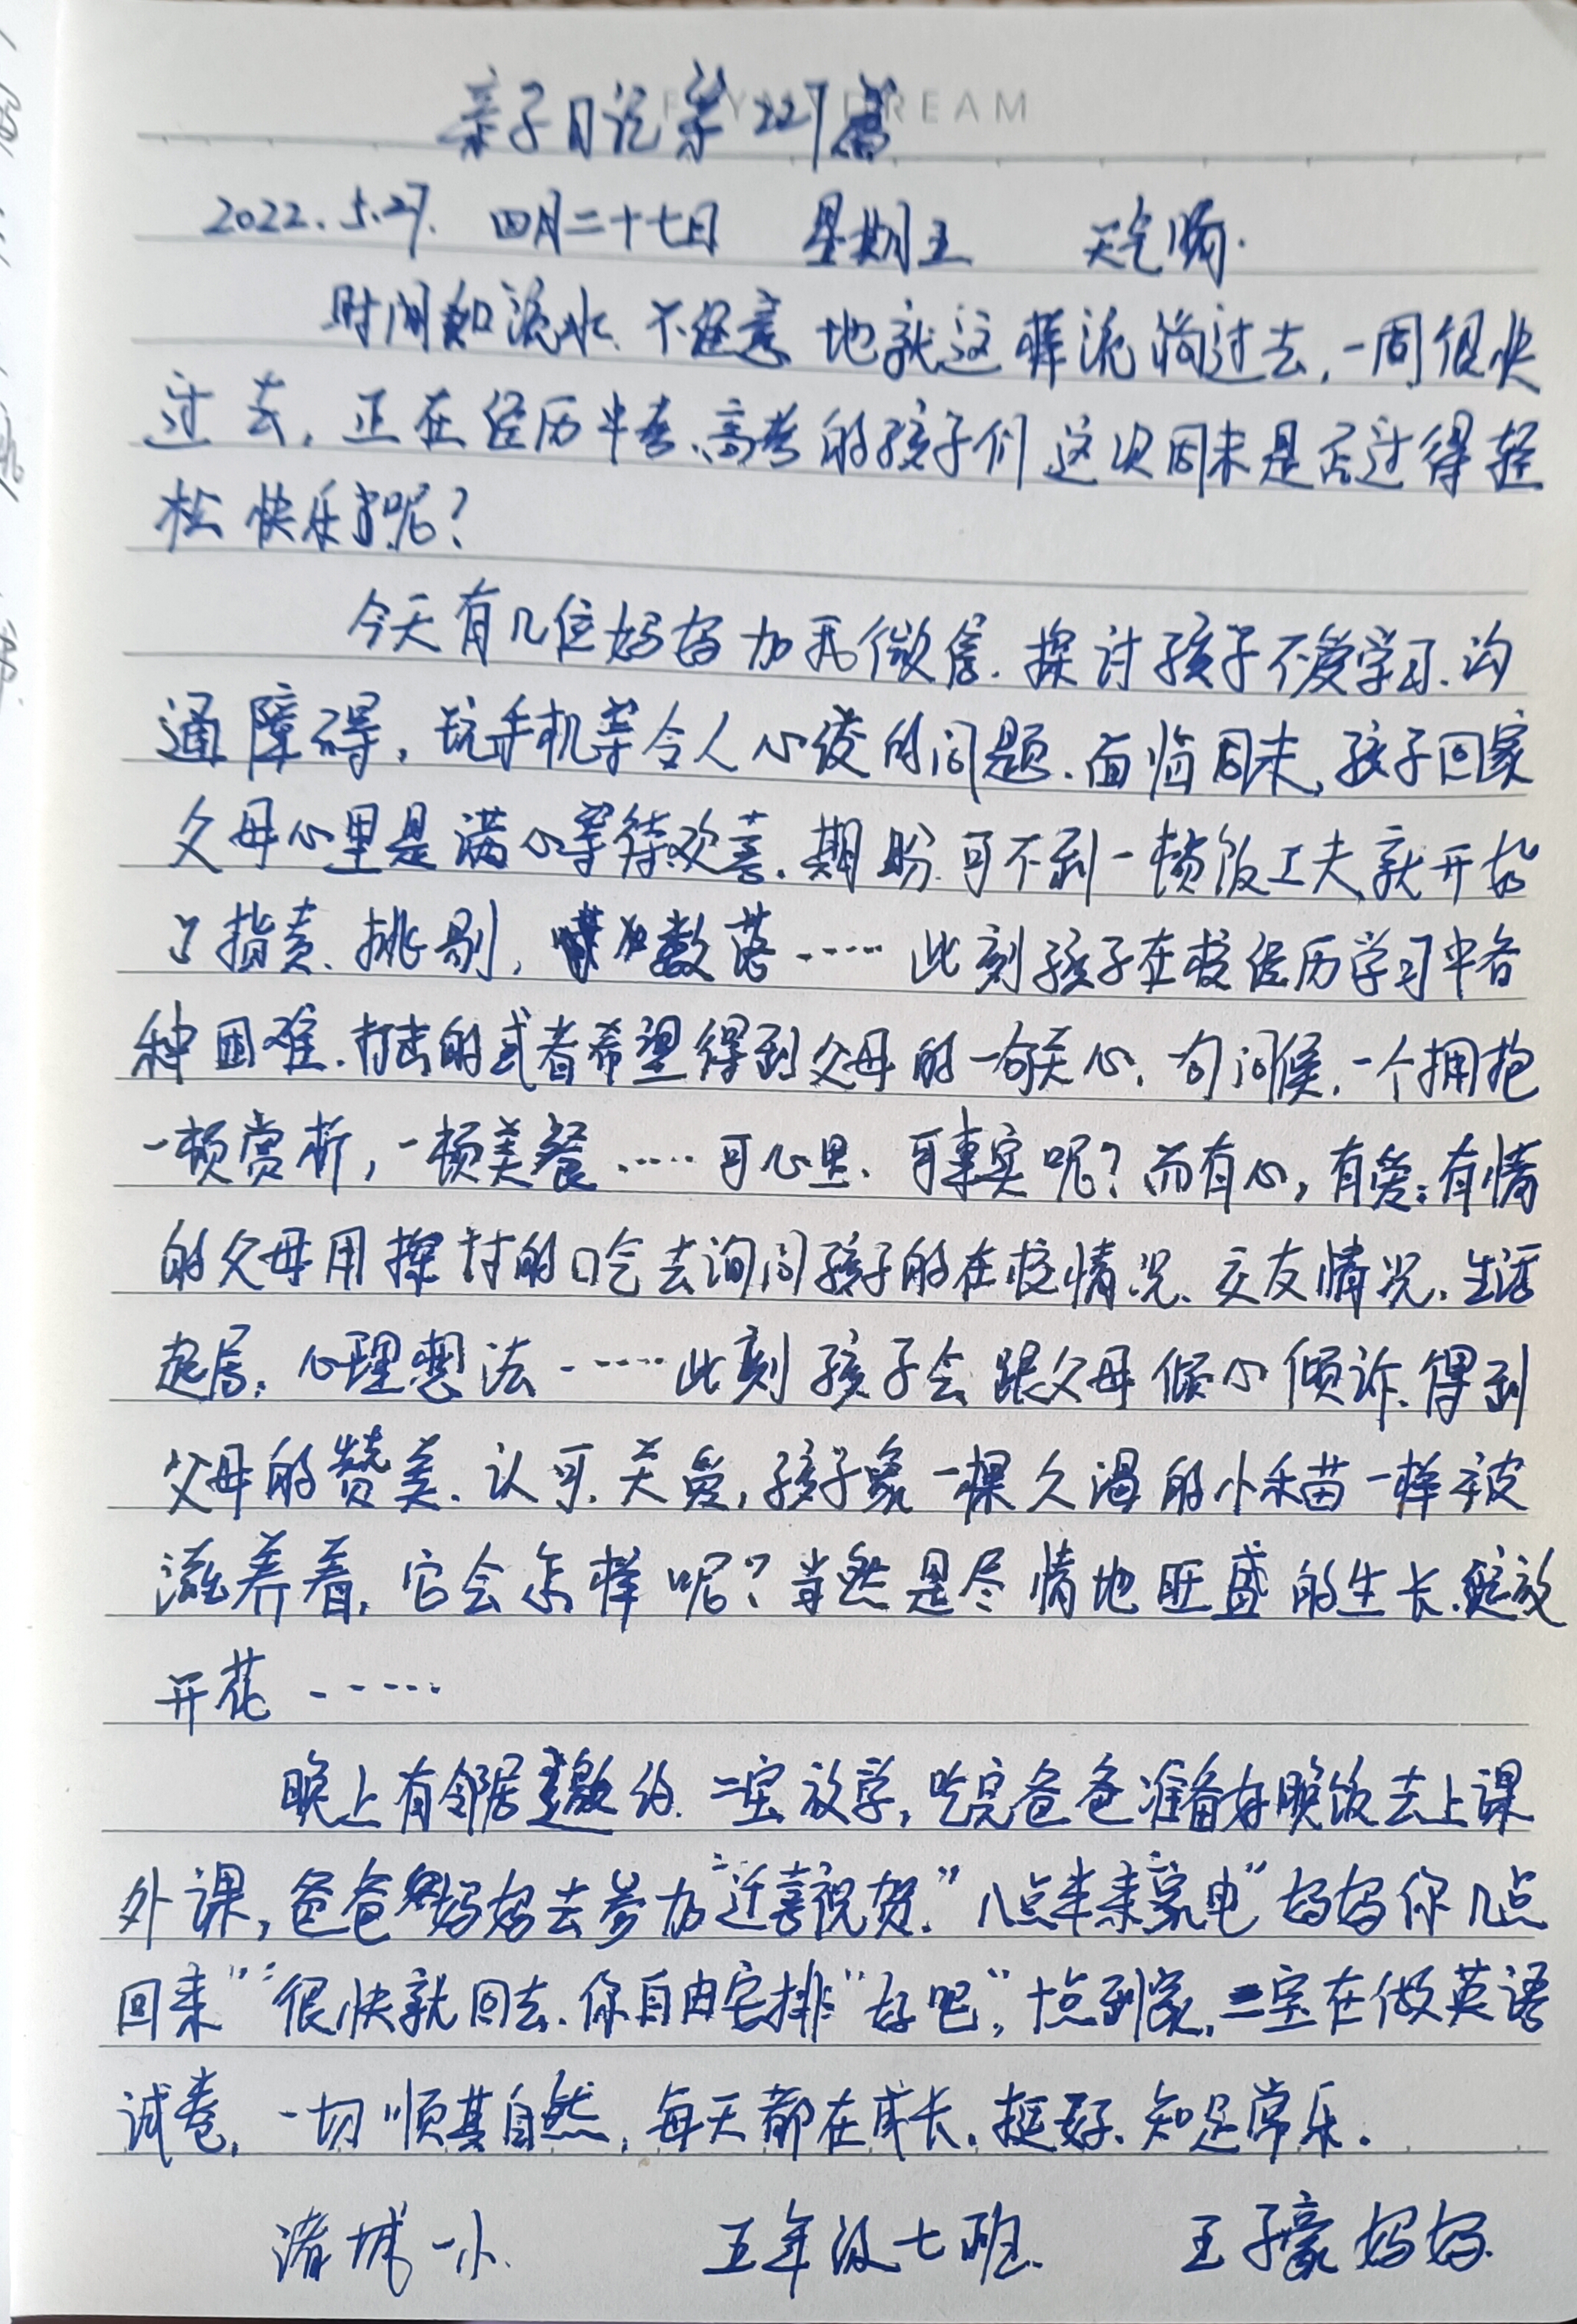 亲子日记第227篇
DREAM
2022.5.27. 四月二十七日 星期五 天气晴.
时间如流水、不经意地就这样流淌过去,一周很快
过去,正在经历中考、高考的孩子们这次周末是否过得轻
松快乐呢?
今天有几位妈妈加我微信.探讨孩子不爱学习、沟
通障碍,玩手机等令人心痿的问题.面临周末,孩子回家
父母心里是满心等待欢喜.期盼.可不到一顿饭工夫,就开始
了指责、挑剔,数落……此刻孩子在校经历学习中各
种困难.打击的或者希望得到父母的一句关心.句问候,一个拥抱
一顿赏析,一顿美餐……可心里、可事实呢?而有心,有爱;有情
的父母用探讨的口气去询问孩子的在校情况、交友情况.生活
起居;心理想法……此刻孩子会跟父母倾心倾诉、得到
父母的赞美.认可.关爱,孩子象一棵久渴的小禾苗一样被
滋养着,它会怎样呢?当然是尽情地旺盛的生长.绽放
开花……
晚上有邻居邀约.二宝放学,吃完爸爸准备好晚饭去上课
外课,爸爸妈妈去参加“迁喜祝贺.”八点半来家电“妈妈你几点
回来”“很快就回去.你自由安排”“好吧”,十点到家,二宝在做英语
试卷,一切顺其自然,每天都在成长.挺好.知足常乐.
诸城一小. 五年级七班. 王子豪妈妈.